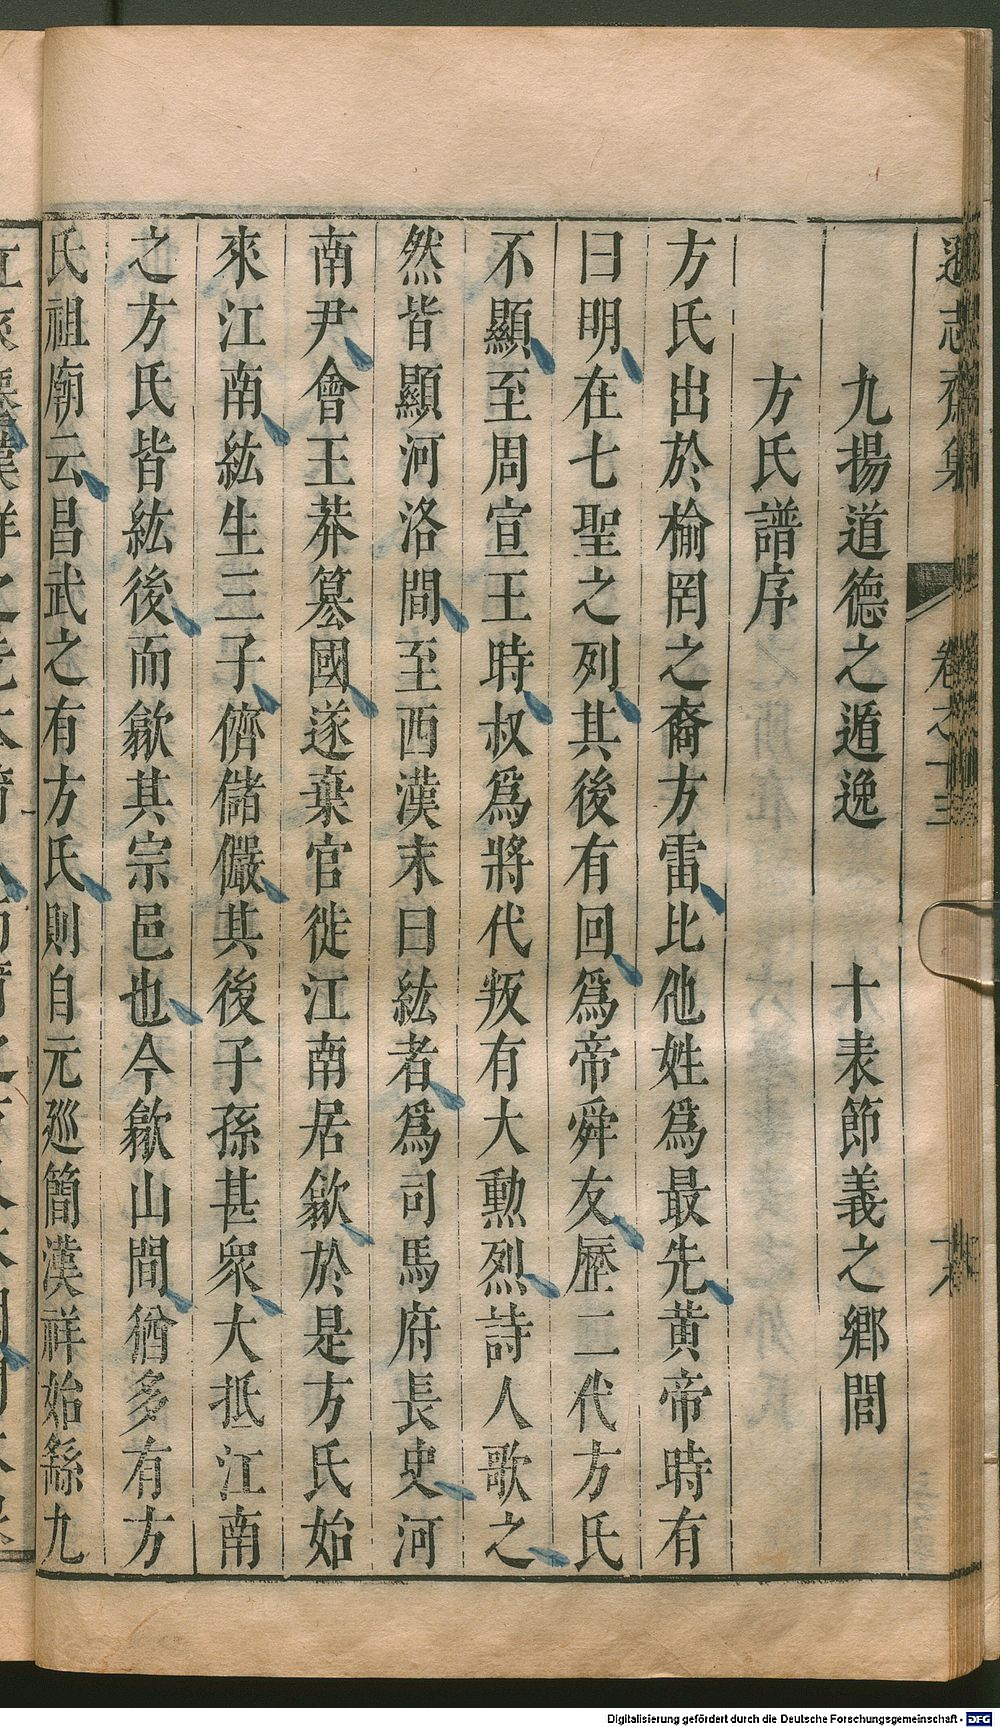 遜志齋集 卷之十三
九揚道德之遁逸 十表節義之鄉閭
方氏譜序
方氏出於榆罔之裔方雷比他姓爲最先黃帝時有
曰明在七聖之列其後有回爲帝舜友歷二代方氏
不顯至周宣王時叔爲將代叛有大勳烈詩人歌之
然皆顯河洛間至西漢末曰紘者爲司馬府長史河
南尹會王莽篡國遂棄官徙江南居歙於是方氏始
來江南紘生三子儕儲儼其後子孫甚衆大抵江南
之方氏皆紘後而歙其宗邑也今歙山間猶多有方
氏祖廟云昌武之有方氏則自元廵簡漢祥始繇九
Digitalisierung gefördert durch die Deutsche Forschungsgemeinschaft - DFG